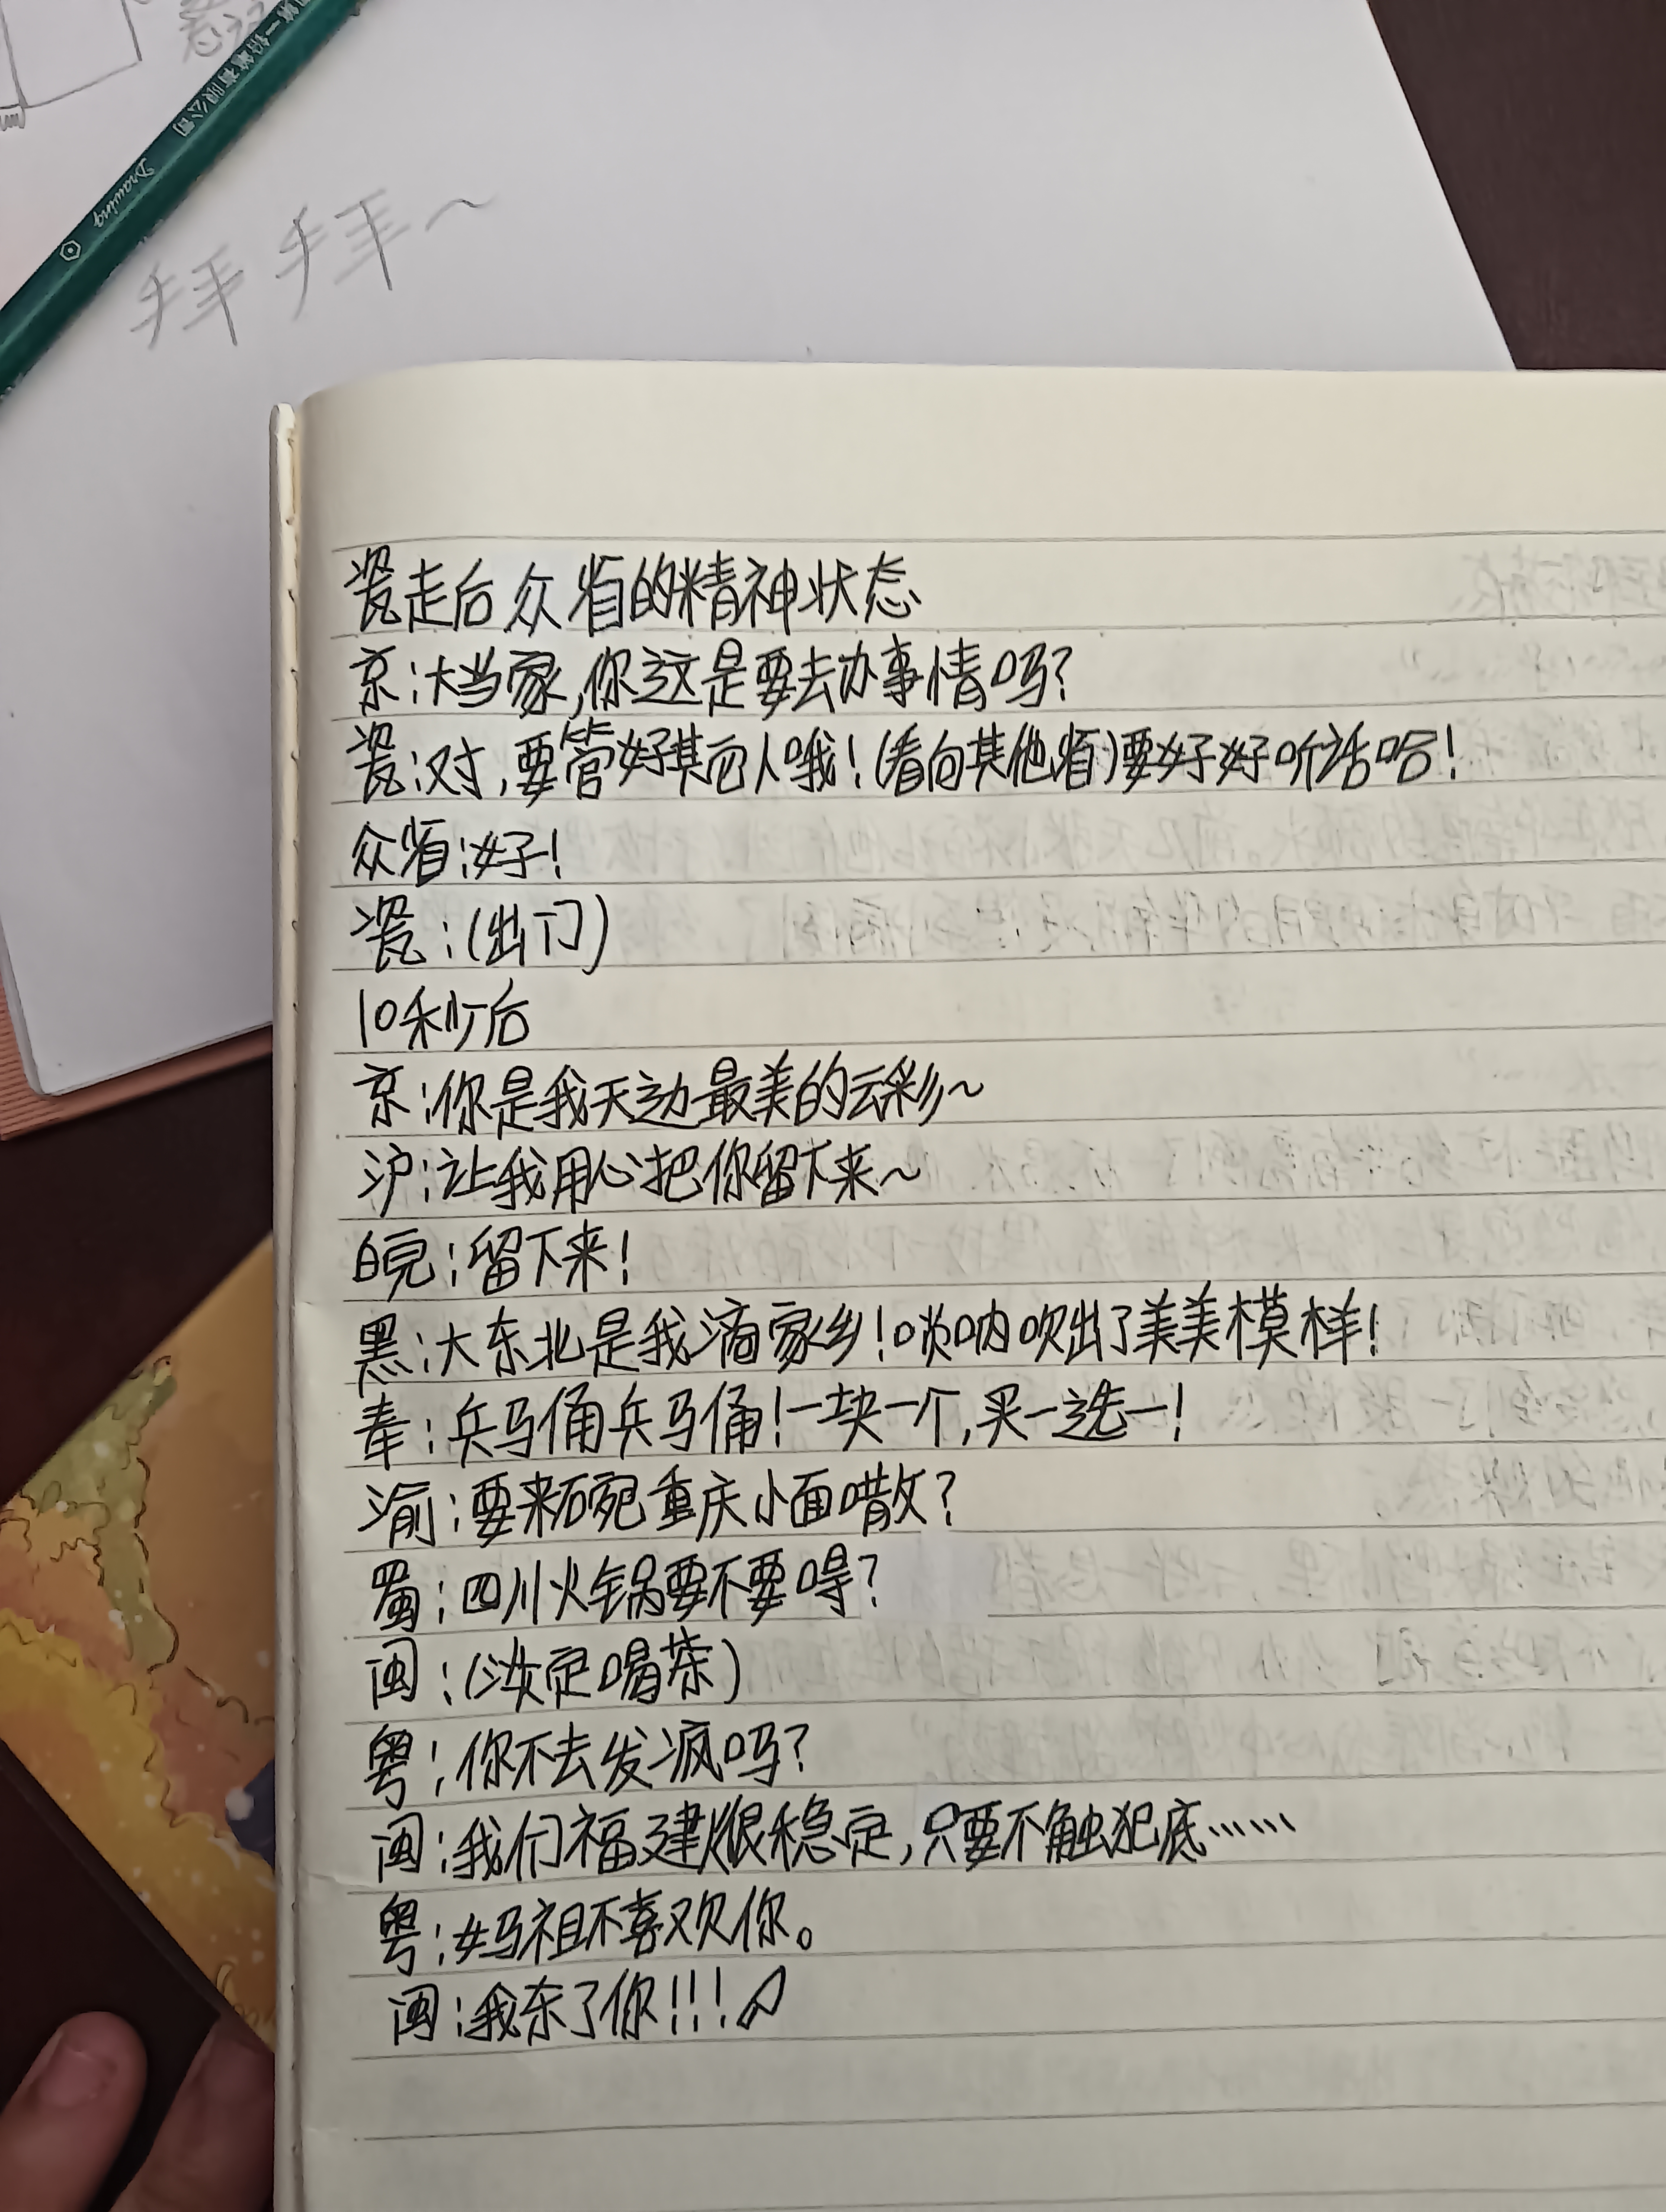 第一铅笔有限公司
Drawing
拜拜~
瓷走后众省的精神状态
京:大当家,你这是要去办事情吗?
瓷:对,要管好其它人哦!(看向其他省)要好好听话哈!
众省:好!
瓷:(出门)
10秒后
京:你是我天边最美的云彩~
沪:让我用心把你留下来~
皖:留下来!
黑:大东北是我滴家乡!唢呐吹出了美美模样!
秦:兵马俑兵马俑!一块一个,买一送一!
渝:要来碗重庆小面噻?
蜀:四川火锅要不要得?
闽:(淡定喝茶)
粤:你不去发疯吗?
闽:我们福建很稳定,只要不触犯底……
粤:妈祖不喜欢你。
闽:我杀了你!!!